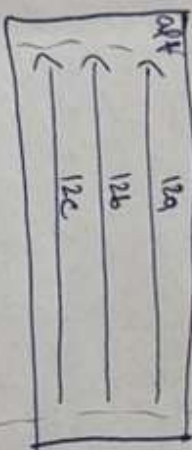 alt
12a
12b
12c